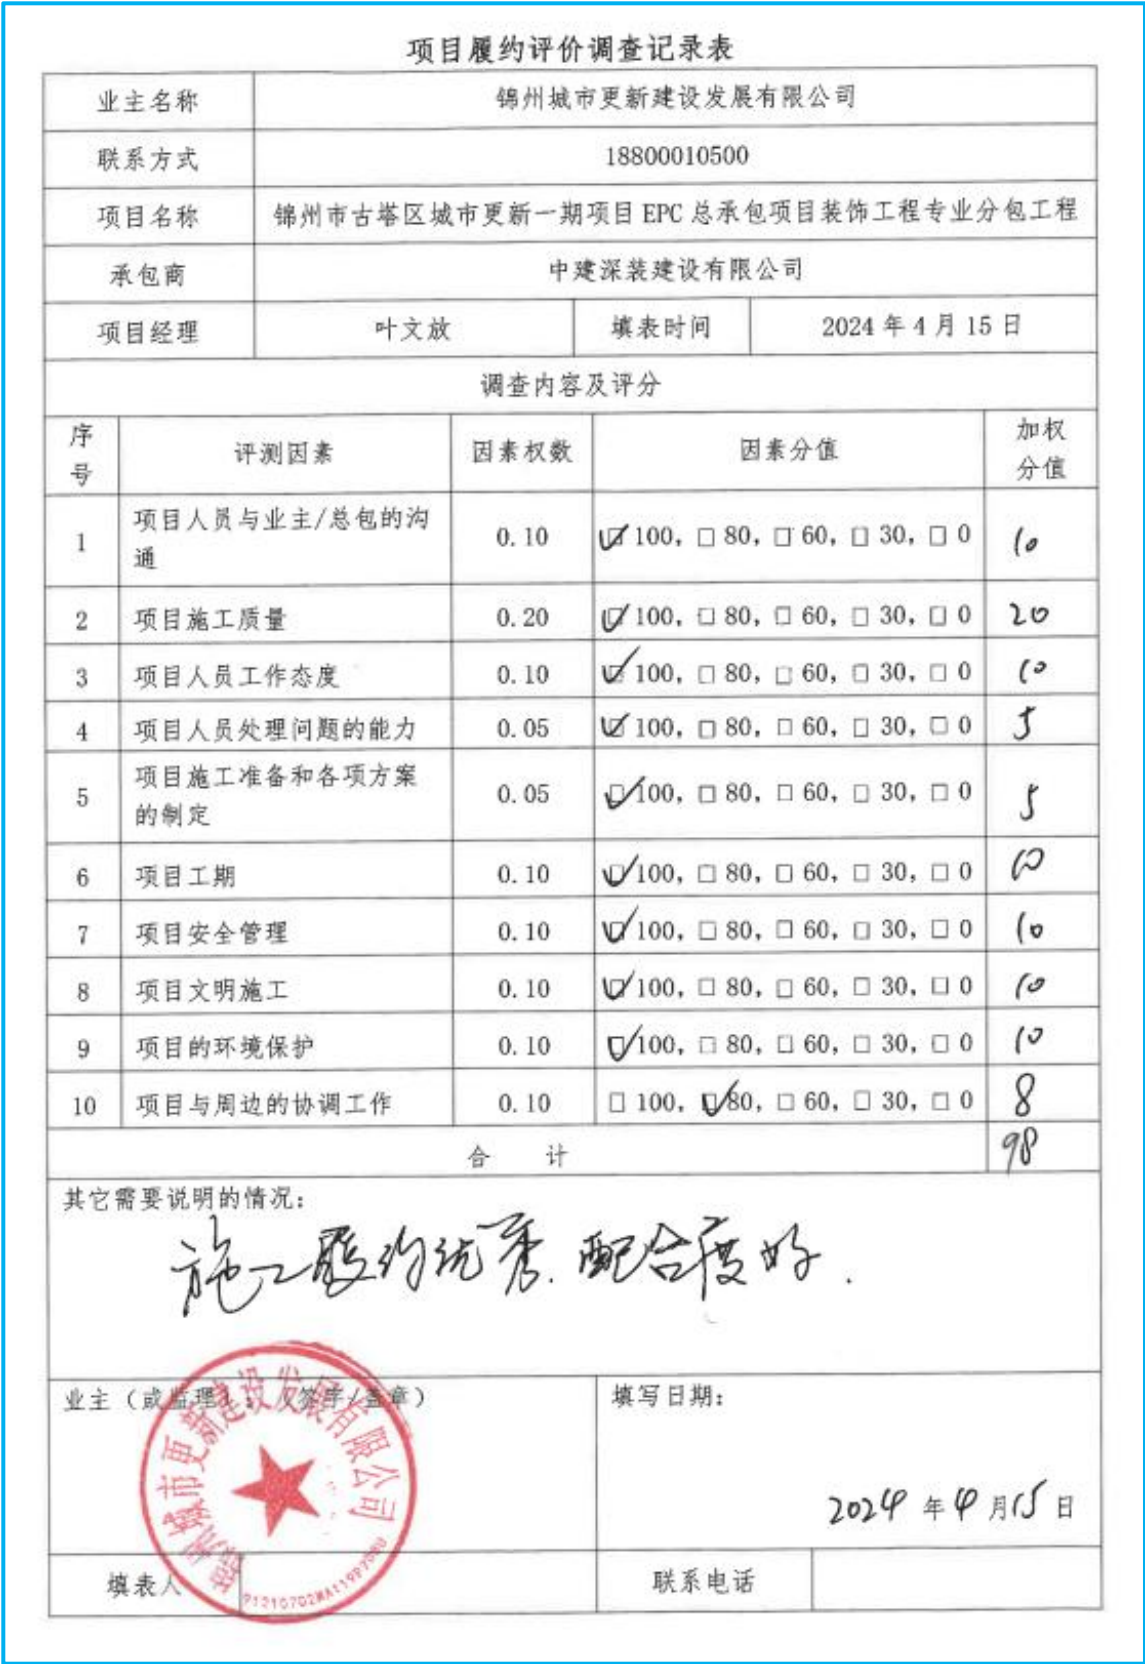 项目履约评价调查记录表
业主名称 锦州城市更新建设发展有限公司
联系方式 18800010500
项目名称 锦州市古塔区城市更新一期项目 EPC 总承包项目装饰工程专业分包工程
承包商 中建深装建设有限公司
项目经理 叶文放 填表时间 2024 年 4 月 15 日
调查内容及评分
序号 评测因素 因素权数 因素分值 加权分值
1 项目人员与业主/总包的沟通 0.10 ☑ 100, □ 80, □ 60, □ 30, □ 0 10
2 项目施工质量 0.20 ☑ 100, □ 80, □ 60, □ 30, □ 0 20
3 项目人员工作态度 0.10 ☑ 100, □ 80, □ 60, □ 30, □ 0 10
4 项目人员处理问题的能力 0.05 ☑ 100, □ 80, □ 60, □ 30, □ 0 5
5 项目施工准备和各项方案的制定 0.05 ☑ 100, □ 80, □ 60, □ 30, □ 0 5
6 项目工期 0.10 ☑ 100, □ 80, □ 60, □ 30, □ 0 10
7 项目安全管理 0.10 ☑ 100, □ 80, □ 60, □ 30, □ 0 10
8 项目文明施工 0.10 ☑ 100, □ 80, □ 60, □ 30, □ 0 10
9 项目的环境保护 0.10 ☑ 100, □ 80, □ 60, □ 30, □ 0 10
10 项目与周边的协调工作 0.10 □ 100, ☑ 80, □ 60, □ 30, □ 0 8
合 计 98
其它需要说明的情况:
施工履约优秀. 配合度好.
业主（或监理）：（签字/盖章） 填写日期:
锦州城市更新建设发展有限公司
2024 年 4 月 15 日
填表人 联系电话